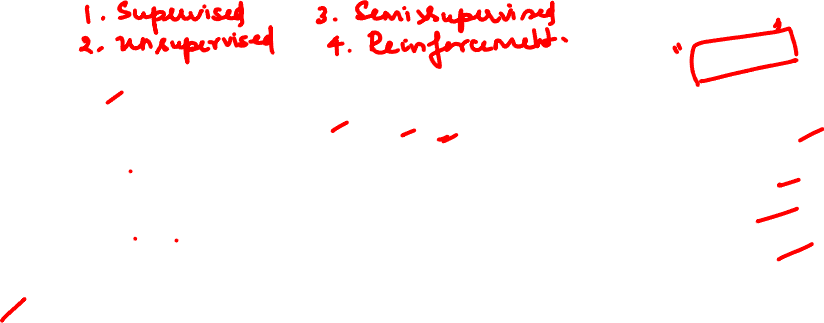 1. Supervised 3. Semisupervised
2. Unsupervised 4. Reinforcement.